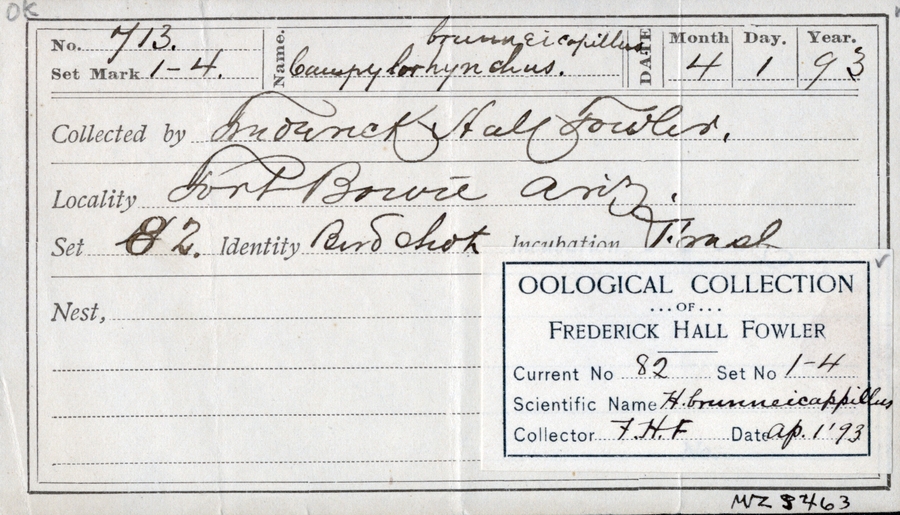 OK
No. 713. Name. brunneicapillus DATE Month Day. Year.
Set Mark 1-4. Campylorhynchus. 4 1 93
Collected by Frederick Hall Fowler.
Locality Fort Bowie Ariz.
Set 82. Identity Bird shot Incubation Fresh
Nest,
OOLOGICAL COLLECTION
...OF...
FREDERICK HALL FOWLER
Current No 82 Set No 1-4
Scientific Name H. brunneicappillus
Collector F.H.F Date ap. 1 '93
MVZ 8463